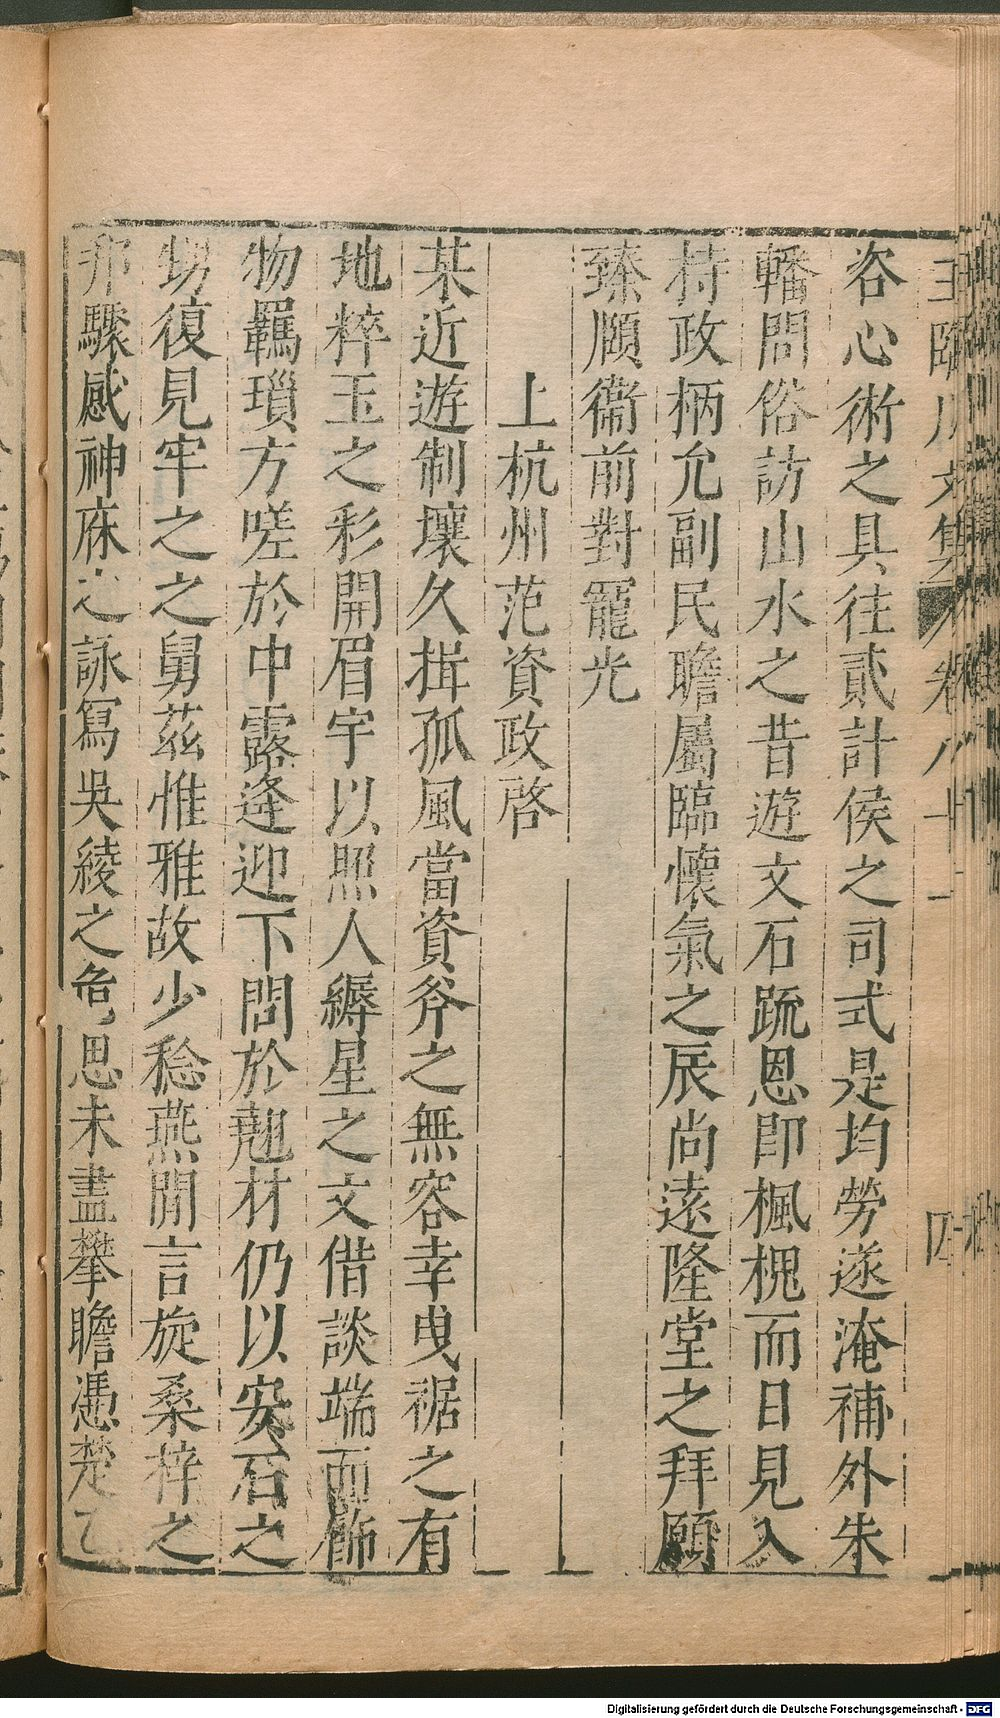 王臨川文集 卷八十一 四
咨心術之具往貳計侯之司式是均勞遂淹補外朱
轓問俗訪山水之昔遊文石疏恩卽楓槐而日見入
持政柄允副民瞻屬臨懷氣之辰尚遠隆堂之拜願
臻願衞前對寵光
上杭州范資政啓
某近遊制壤久揖孤風當資斧之無容幸曳裾之有
地粹玉之彩開眉宇以照人縟星之文借談端而飾
物羈瑣方嗟於中露逢迎下問於翹材仍以安石之
甥復見牢之之舅茲惟雅故少稔燕閒言旋桑梓之
邦驟感神庥之詠寫吳綾之危思未盡攀瞻憑楚乙
Digitalisierung gefördert durch die Deutsche Forschungsgemeinschaft - DFG